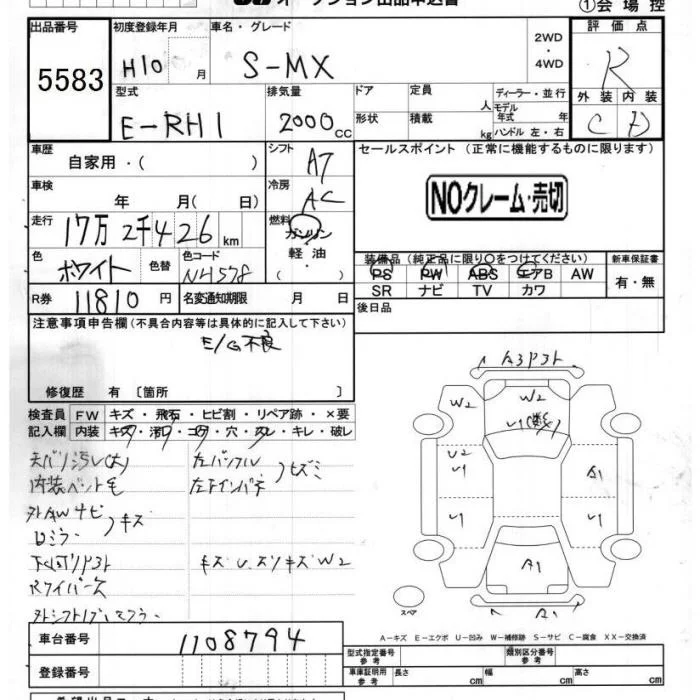 オークション出品申込書
①会場控
出品番号
5583
初度登録年月
H10 月
車名・グレード
S-MX
2WD
・
4WD
評価点
R
型式
E-RH1
排気量
2000 cc
ドア
形状
定員 人
積載 kg
ディーラー・並行
モデル年式 年
ハンドル 左・右
外装 内装
C D
車歴
自家用・( )
シフト
AT
セールスポイント (正常に機能するものに限ります)
NOクレーム・売切
車検
年 月( 日)
冷房
AC
走行
17万2千426 km
燃料
ガソリン
軽油
( )
色
ホワイト
色替
色コード
装備品 (純正品に限り○をつけてください)
新車保証書
PS PW ABS エアB AW
SR ナビ TV カワ
有・無
R券
11810 円
名変通知期限 月 日
後日品
注意事項申告欄(不具合内容等は具体的に記入して下さい)
E/G不良
修復歴 有 〔箇所 〕
検査員
記入欄
FW キズ・飛石・ヒビ割・リペア跡・×要
内装 キズ・汚れ・コゲ・穴・スレ・キレ・破レ
A3P3ト
W2
W2
U1
U2
U1
A1
U1
U1
A1
A1
スペア
内装ベント毛
キズ
キズ U. スリキズ W2
Rワイパー欠
A-キズ E-エクボ U-凹み W-補修跡 S-サビ C-腐食 XX-交換済
車台番号
1108794
登録番号
型式指定番号
参考
類別区分番号
参考
車庫証明用
参考
長さ cm
幅 cm
高さ cm